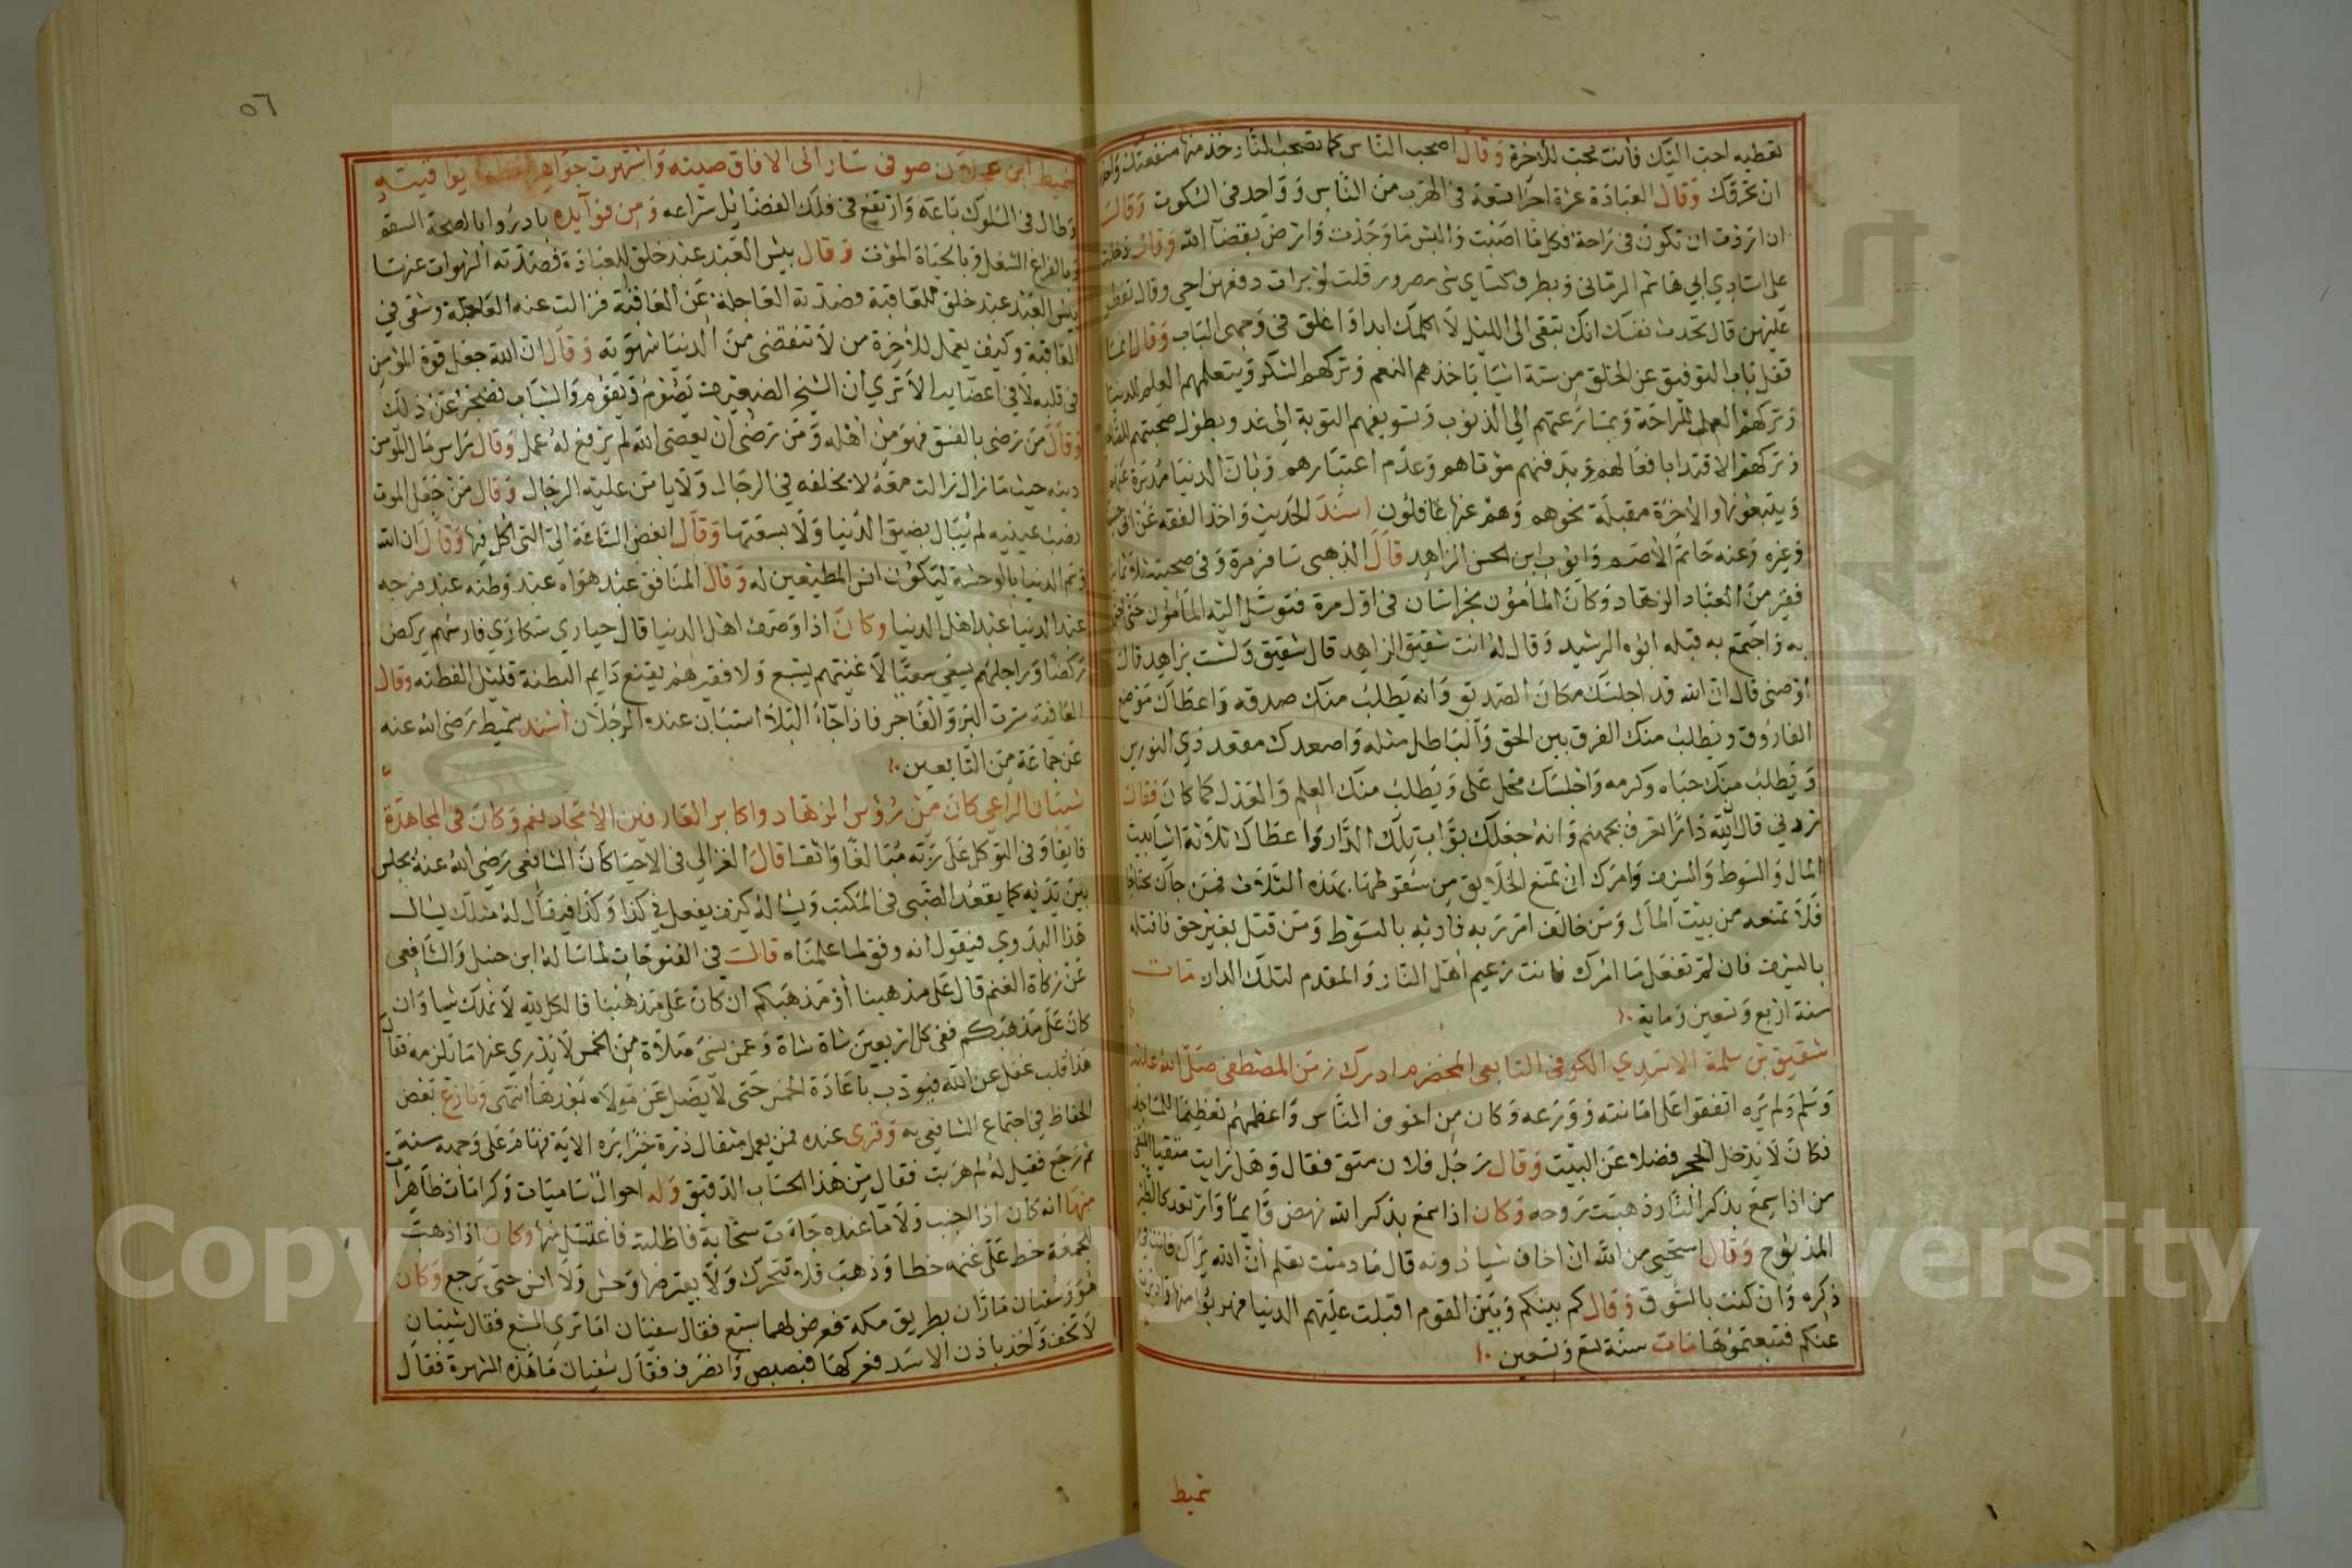 تعطيه احب اليك فأنت محب للآخرة وقال اصحب الناس كما تصحب النار خذ منها منفعتك واحذر
ان تحرقك وقال العبادة عشرة اجزا تسعة في الهرب من الناس وواحد في السكوت وقال
ان اردت ان تكون في راحة فكل ما اصبت والبس ما وجدت وارض بقضآ الله وقال دخلت
على استاذي ابي هاشم الرماني وبطرف كساي شي مصرور قلت لوزرات دفعهن اخي وقال تفطر
عليهن قال تحدث نفسك انك تبقى الى الليل لا كلمتك ابدا واغلق في وجهي الباب وقال انما
قفل باب التوفيق عن الخلق من ستة اشيا باخذهم النعم وتركهم الشكر وبتعلمهم العلم
وتركهم العمل وبمسارعتهم الي الذنوب وتسويفهم التوبة الى غد وبطول صحبتهم
وتركهم الاقتدا بافعالهم وبدفنهم موتاهم وعدم اعتبارهم وبان الدنيا مدبرة عنهم
ويتبعونها والآخرة مقبلة نحوهم وهم عنها غافلون اسند الحديث واخذ الفقه عن
وغيره وعنه حاتم الاصم وايوب ابن الحسن الزاهد قال الذهبى سافر مرة وفي صحبته
فقير من العباد الزهاد وكان المأمون بخراسان في اول مرة فتوسل اليه المأمون حتى
به واجتمع به قبله ابوه الرشيد وقال له انت شقيق الزاهد قال شقيق ولست بزاهد قال
اوصني قال ان الله قد اجلسك مكان الصديق وانه يطلب منك صدقه واعطاك موضع
الفاروق ويطلب منك الفرق بين الحق والباطل مثله واصعدك مقعد ذي النورين
ويطلب منك حياه وكرمه واجلسك محل على ويطلب منك العلم والعدل كما كان فقال
زدني قال لله دارا تعرف بجهنم وانه جعلك بواب تلك الدار واعطاك ثلاثة اشيا بيت
المال والسوط والسيف وامرك ان تمنع الخلايق من سقوطها بهذه الثلاث فمن جآك
فلا تمنعه من بيت المال ومن خالف امر ربه فادبه بالسوط ومن قتل بغير حق فاقتله
بالسيف فان لم تفعل ما امرك فانت زعيم اهل النار والمقدم لتلك الدار مات
سنة اربع وتسعين وماية
شقيق بن سلمة الاسدي الكوفي التابعي المخضرم ادرك زمن المصطفى صلى الله عليه
وسلم ولم يره اتفقوا على امانته وورعه وكان من اخوف الناس واعظمهم تعظيما للمساجد
فكان لا يدخل الحجر فضلا عن البيت وقال رجل فلان متق فقال وهل رايت متقيا
من اذا سمع بذكر النار ذهبت روحه وكان اذا سمع بذكر الله نهض قايما وارتعد كالطير
المذبوح وقال استحيي من الله ان اخاف شيا دونه قال ما دمت تعلم ان الله يراك فانت في
ذكره وان كنت بالسوق وقال كم بينكم وبين القوم اقبلت عليهم الدنيا فهربوا منها
عنكم فتبعتموها مات سنة تسع وتسعين
شميط
٥٦
شميط ابن عجلان صوفي سار الى الافاق صيته واشتهرت جواهر يواقيته
وطال في السلوك باعه وارتفع في فلك الفضايل شراعه ومن فوآيده بادروا بالصحة السقم
وبالفراغ الشغل وبالحياة الموت وقال بيس العبد عبد خلق للعبادة فصدته الشهوات عنها
بيس العبد عبد خلق للعاقبة فصدته العاجلة عن العاقبة فزالت عنه العاجلة وشقى في
العاقبة وكيف يعمل للآخرة من لا تنقضى من الدنيا شهوته وقال ان الله جعل قوة المؤمن
في قلبه لا في اعضايه الا تري ان الشيخ الضعيف يصوم ويقوم والشاب يعجز عن ذلك
وقال من رضى بالفسق فهو من اهله ومن رضى ان يعصى الله لم يرفع له عمل وقال راس مال المؤمن
دينه حيث ما زال زالت معه لا يخلفه في الرحال ولا يامن عليه الرجال وقال من جعل الموت
نصب عينيه لم يبال بضيق الدنيا ولا بسعتها وقال ابغض الساعة الي التي اكل فيها وقال ان الله
وسم الدنيا بالوحشة ليكون انس المطيعين له وقال المنافق عبد هواه عبد بطنه عبد فرجه
عبد الدنيا عبد اهل الدنيا وكان اذا وصف اهل الدنيا قال حيارى سكارى فارسهم يركض
ركضا وراجلهم يسعى سعيا لا غنيهم يشبع ولا فقيرهم يقنع دايم البطنة قليل الفطنه وقال
العافية سترت البر والفاجر فاذا جآء البلآ استبان عنده الرجلان اسند شميط رضى الله عنه
عن جماعة من التابعين
شيبان الراعي كان من رؤس الزهاد واكابر العارفين الامجاد نعم وكان في المجاهدة
فايقا وفى التوكل على ربه مبالغا واثقا قال الغزالي في الاحيا كان الشافعى رضى الله عنه يجلس
بين يديه كما يقعد الصبي في المكتب ويساله كيف يفعل في كذا وكذا فيقال له مثلك يسال
هذا البدوي فيقول انه وفق لما علمناه قال في الفتوحات لما ساله ابن حنبل والشافعى
عن زكاة الغنم قال على مذهبنا أو مذهبكم ان كان على مذهبنا فالكل لله لا نملك شيا وان
كان على مذهبكم ففى كل اربعين شاة شاة وعمن نسى صلاة من الخمس لا يدري عنها ما يلزمه فقال
هذا قلب غفل عن الله فيودب باعادة الخمس حتى لا يضل عن مولاه بعدها انتهى ونازع بعض
الحفاظ في اجتماع الشافعى به وقرى عنده فمن يعمل مثقال ذرة خيرا يره الآية فهام على وجهه سنة
ثم رجع فقيل له لم هربت فقال من هذا الحساب الدقيق وله احوال ساميات وكرامات ظاهرات
منها انه كان اذا اجنب ولا ما عنده جاءت سحابة فاظلته فاغتسل منها وكان اذا ذهب
للجمعة خط على غنمه خطا وذهب فلا تتحرك ولا يعترضها وحش ولا انس حتى يرجع وكان
هو وسفيان ماران بطريق مكة فعرض لهما سبع فقال سفيان اما ترى السبع فقال شيبان
لا تخف واخذ باذن الاسد فعركها فبصبص وانصرف فقال سفيان ما هذه الشهرة فقال
Copyright © King Saud University